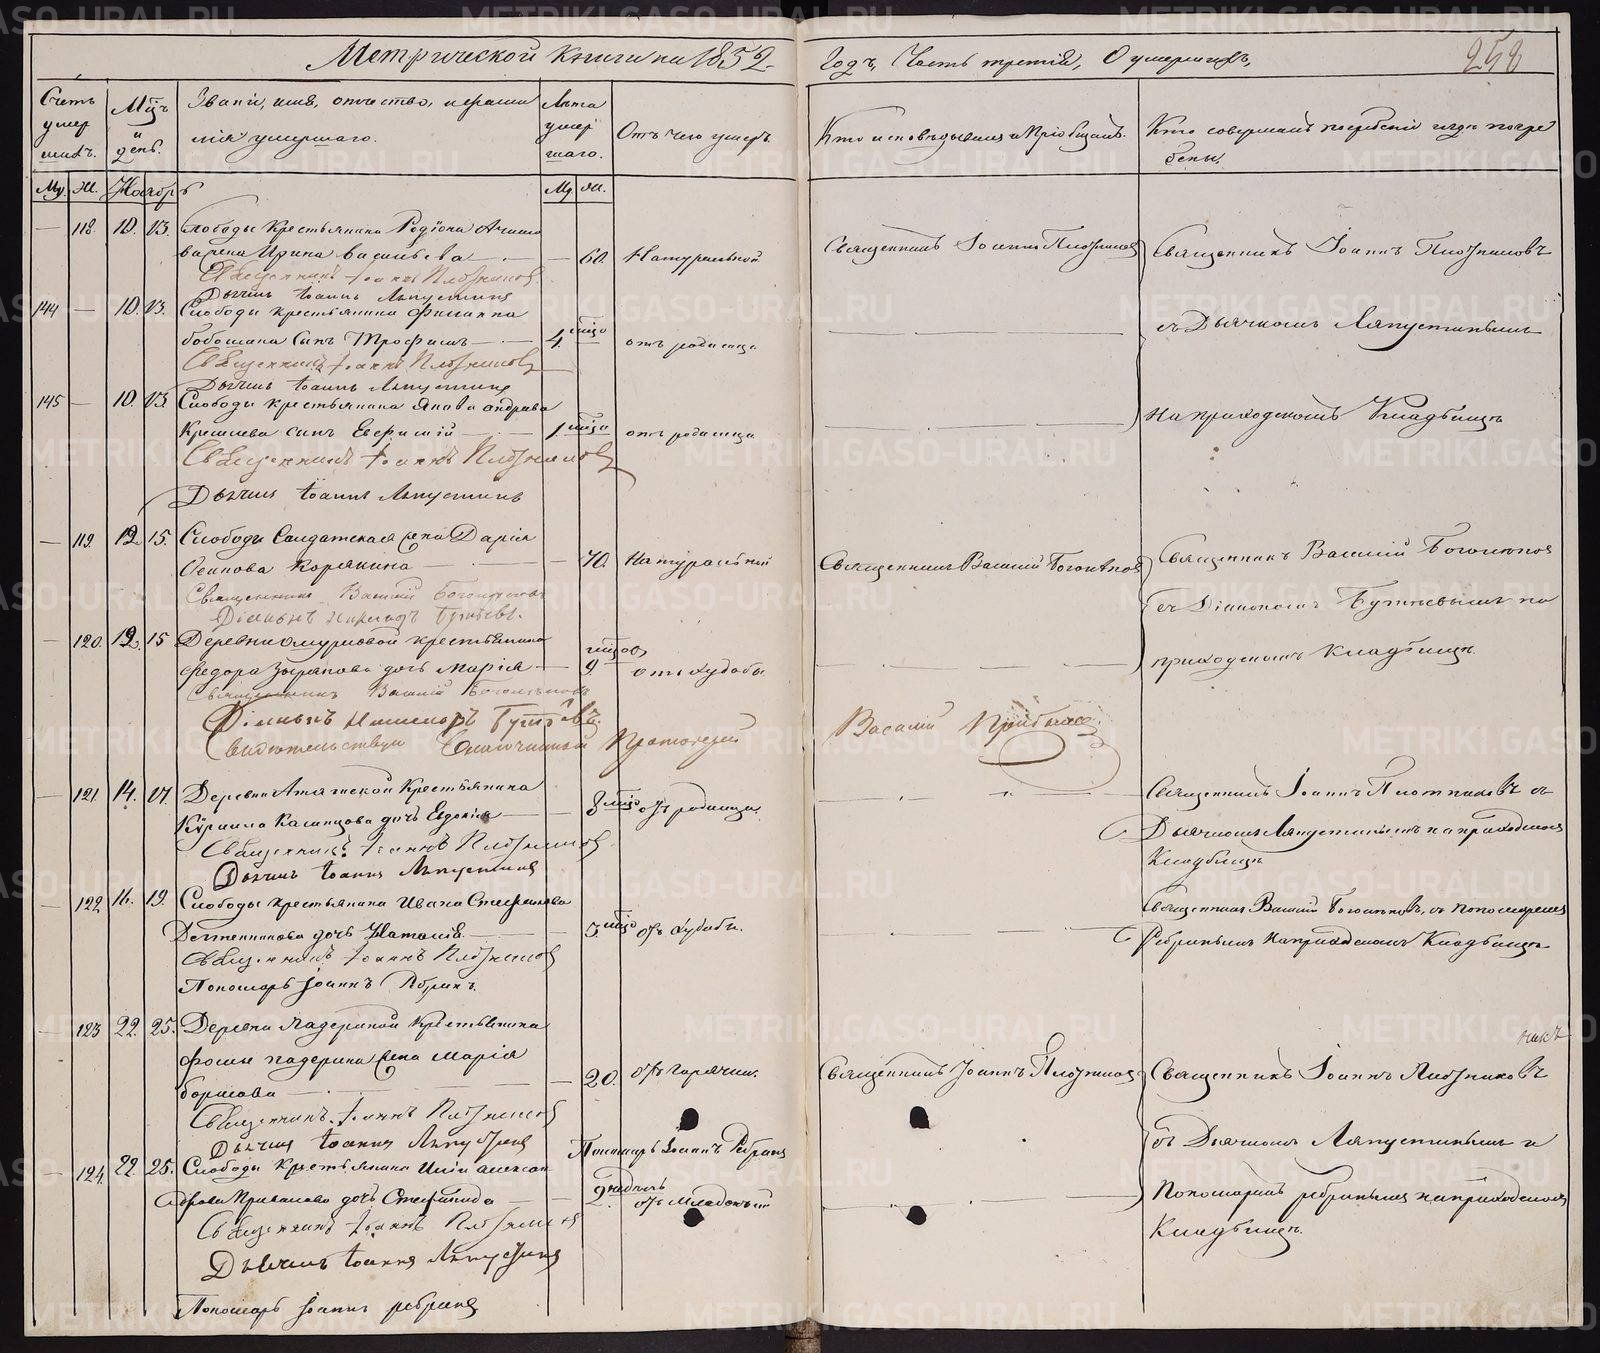 Метрической книги на 1852
Годъ, Часть третія, О умершихъ,
252
Счетъ умер шихъ.
Мѣцъ и день.
Званіе, имя, отчество, и фами лія умершаго.
Лѣта умер шаго.
Отъ чего умеръ.
Кто исповѣдывалъ и Пріобщалъ.
Кто совершалъ погребеніе и гдѣ погре бены.
Му. Ж. Ноябрь
Му. Ж.
— 118. 10. 13. Слободы Крестьянина Родіона
Ирина Васильева — 60. Натуральной
Священникъ Іоаннъ Плотниковъ
Священникъ Іоаннъ Плотниковъ
Священникъ Іоаннъ Плотниковъ
Дьячекъ Іоаннъ Ляпустинъ
144 — 10. 13. Слободы крестьянина Филиппа
Сынъ Трофимъ — 4 мѣц. отъ родимца
съ Дьячкомъ Ляпустинымъ
Священникъ Іоаннъ Плотниковъ
Дьячекъ Іоаннъ Ляпустинъ
145 — 10. 13. Слободы крестьянина Якова
сынъ Евфимій — 1 мѣц. отъ родимца
на приходскомъ Кладбищѣ
Священникъ Іоаннъ Плотниковъ
Дьячекъ Іоаннъ Ляпустинъ
— 119. 12. 15. Слободы Солдатская жена Дарія
Осипова Корякина — 70. Натуральной
Священникъ Василій Боголѣповъ
Священникъ Василій Боголѣповъ
Священникъ Василій Боголѣповъ
съ Діакономъ на
— 120. 12. 15 Деревни крестьянина
Федора Зырянова дочь Марія — мѣцов 9 отъ худобы
приходскомъ Кладбищѣ
Священникъ Василій Боголѣповъ
Діаконъ
Свидѣтельствуи Благочинный Протоіерей
Василій
— 121. 14. 17. Деревни Крестьянина
Кирилла Казанцова дочь Евдокія — 8 мѣц. отъ родимца
Священникъ Іоаннъ Плотниковъ съ
Дьячкомъ Ляпустинымъ на приходскомъ
Кладбищѣ
Священникъ Іоаннъ Плотниковъ
Дьячекъ Іоаннъ Ляпустинъ
— 122. 16. 19. Слободы крестьянина Ивана Стефанова
дочь Наталія — 3 мѣц. отъ худобы.
Священникъ Василій Боголѣповъ, съ Пономаремъ
Ребринымъ на приходскомъ Кладбищѣ
Священникъ Іоаннъ Плотниковъ
Пономарь Іоаннъ Ребринъ.
— 123 22. 25. Деревни Падериной Крестьянина
Фомы Падерина жена Марія
Борисова — 20. отъ горячки.
Священникъ Іоаннъ Плотниковъ
Священникъ Іоаннъ Плотниковъ
Священникъ Іоаннъ Плотниковъ
Дьячекъ Іоаннъ Ляпустинъ
Пономарь Іоаннъ Ребринъ
съ Дьячкомъ Ляпустинымъ и
— 124. 22. 25. Слободы Крестьянина Иліи Алексан
дрова Привалова дочь Степанида — 2 недѣль отъ младенч.
Пономаремъ Ребринымъ на приходскомъ
Кладбищѣ.
Священникъ Іоаннъ Плотниковъ
Дьячекъ Іоаннъ Ляпустинъ
Пономарь Іоаннъ Ребринъ
METRIKI.GASO-URAL.RU